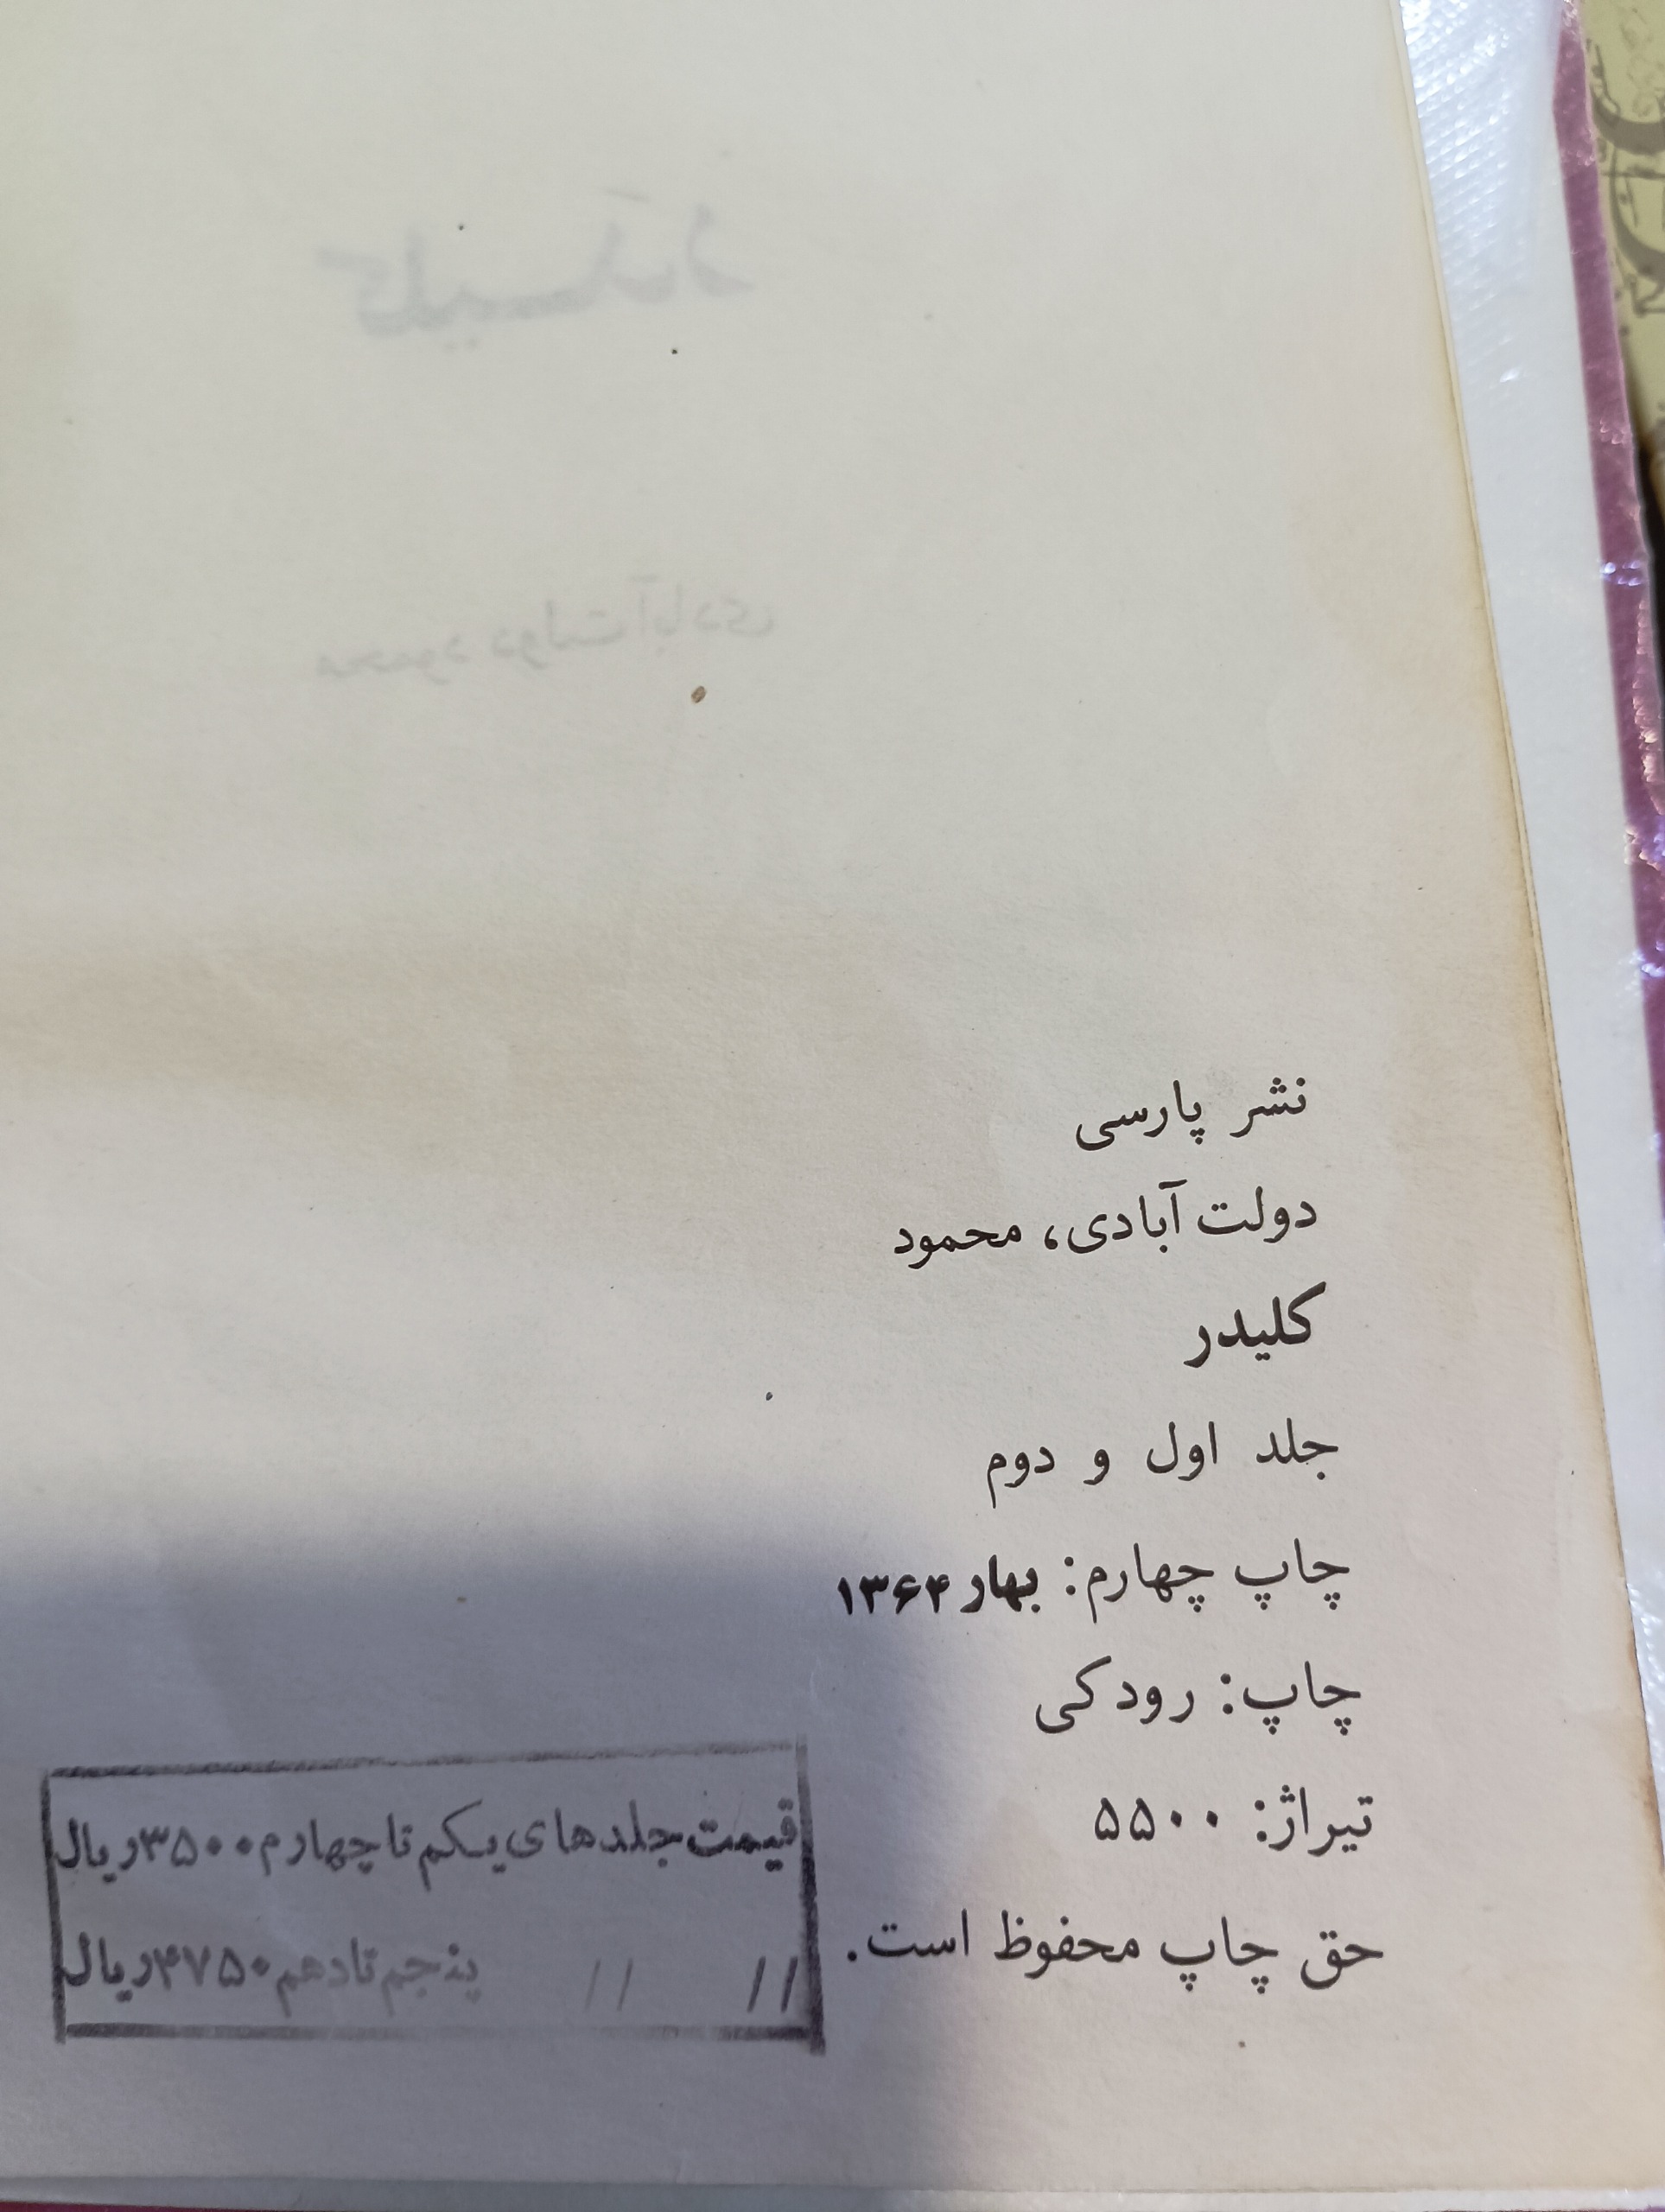 نشر پارسی
دولت‌آبادی، محمود
کلیدر
جلد اول و دوم
چاپ چهارم: بهار ۱۳۶۴
چاپ: رودکی
تیراژ: ۵۵۰۰
حق چاپ محفوظ است.
قیمت جلدهای یکم تا چهارم ۳۵۰۰ ریال
// // پنجم تا دهم ۴۷۵۰ ریال
کلیدر
محمود دولت‌آبادی